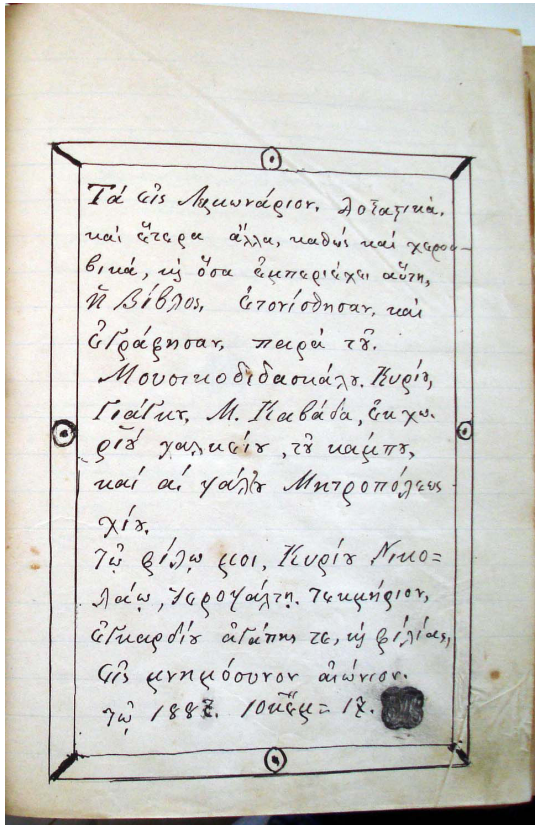 Τά εἰς Λῃκωνάριον, Δοξαςικά,
καί ἕτερα ἄλλα, καθώς καί χερου-
βικά, κ͵ ὅσα ἐμπεριέχει αὕτη,
ἡ Βίβλος, ἐτονίσθησαν, καί
ἐγράφησαν, παρά τȣ͂.
Μουσικοδιδασκάλȣ. Κυρίȣ,
Γιάγκȣ, Μ. Καβάδα, ἐκ χω-
ρίȣ χαλκείȣ, τȣ͂ κάμπȣ,
καί αʹ ψάλτȣ Μητροπόλεως
χίȣ.
τῷ φίλῳ μοι, Κυρίῳ Νικο=
λάῳ, Ἱεροψάλτῃ. τεκμήριον,
ἐγκαρδίȣ ἀγάπης τε, κ͵ φιλίας,
εἰς μνημόσυνον αἰώνιον.
τῷ 188